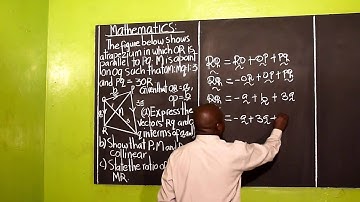 Mathematics:
The figure below shows
a trapezium in which OR is
parallel to PQ. M is a point
on OQ such that OM:MQ=1:3
and PQ = 3OR
Given that OR=a,
OP=b
(a) Express the
vectors RQ and
in terms of a and
b) Show that P, M and
collinear
c) State the ratio of
MR
RQ = RO + OP + PQ
= -OR + OP + PQ
= -a + b + 3a
= -a + 3a +